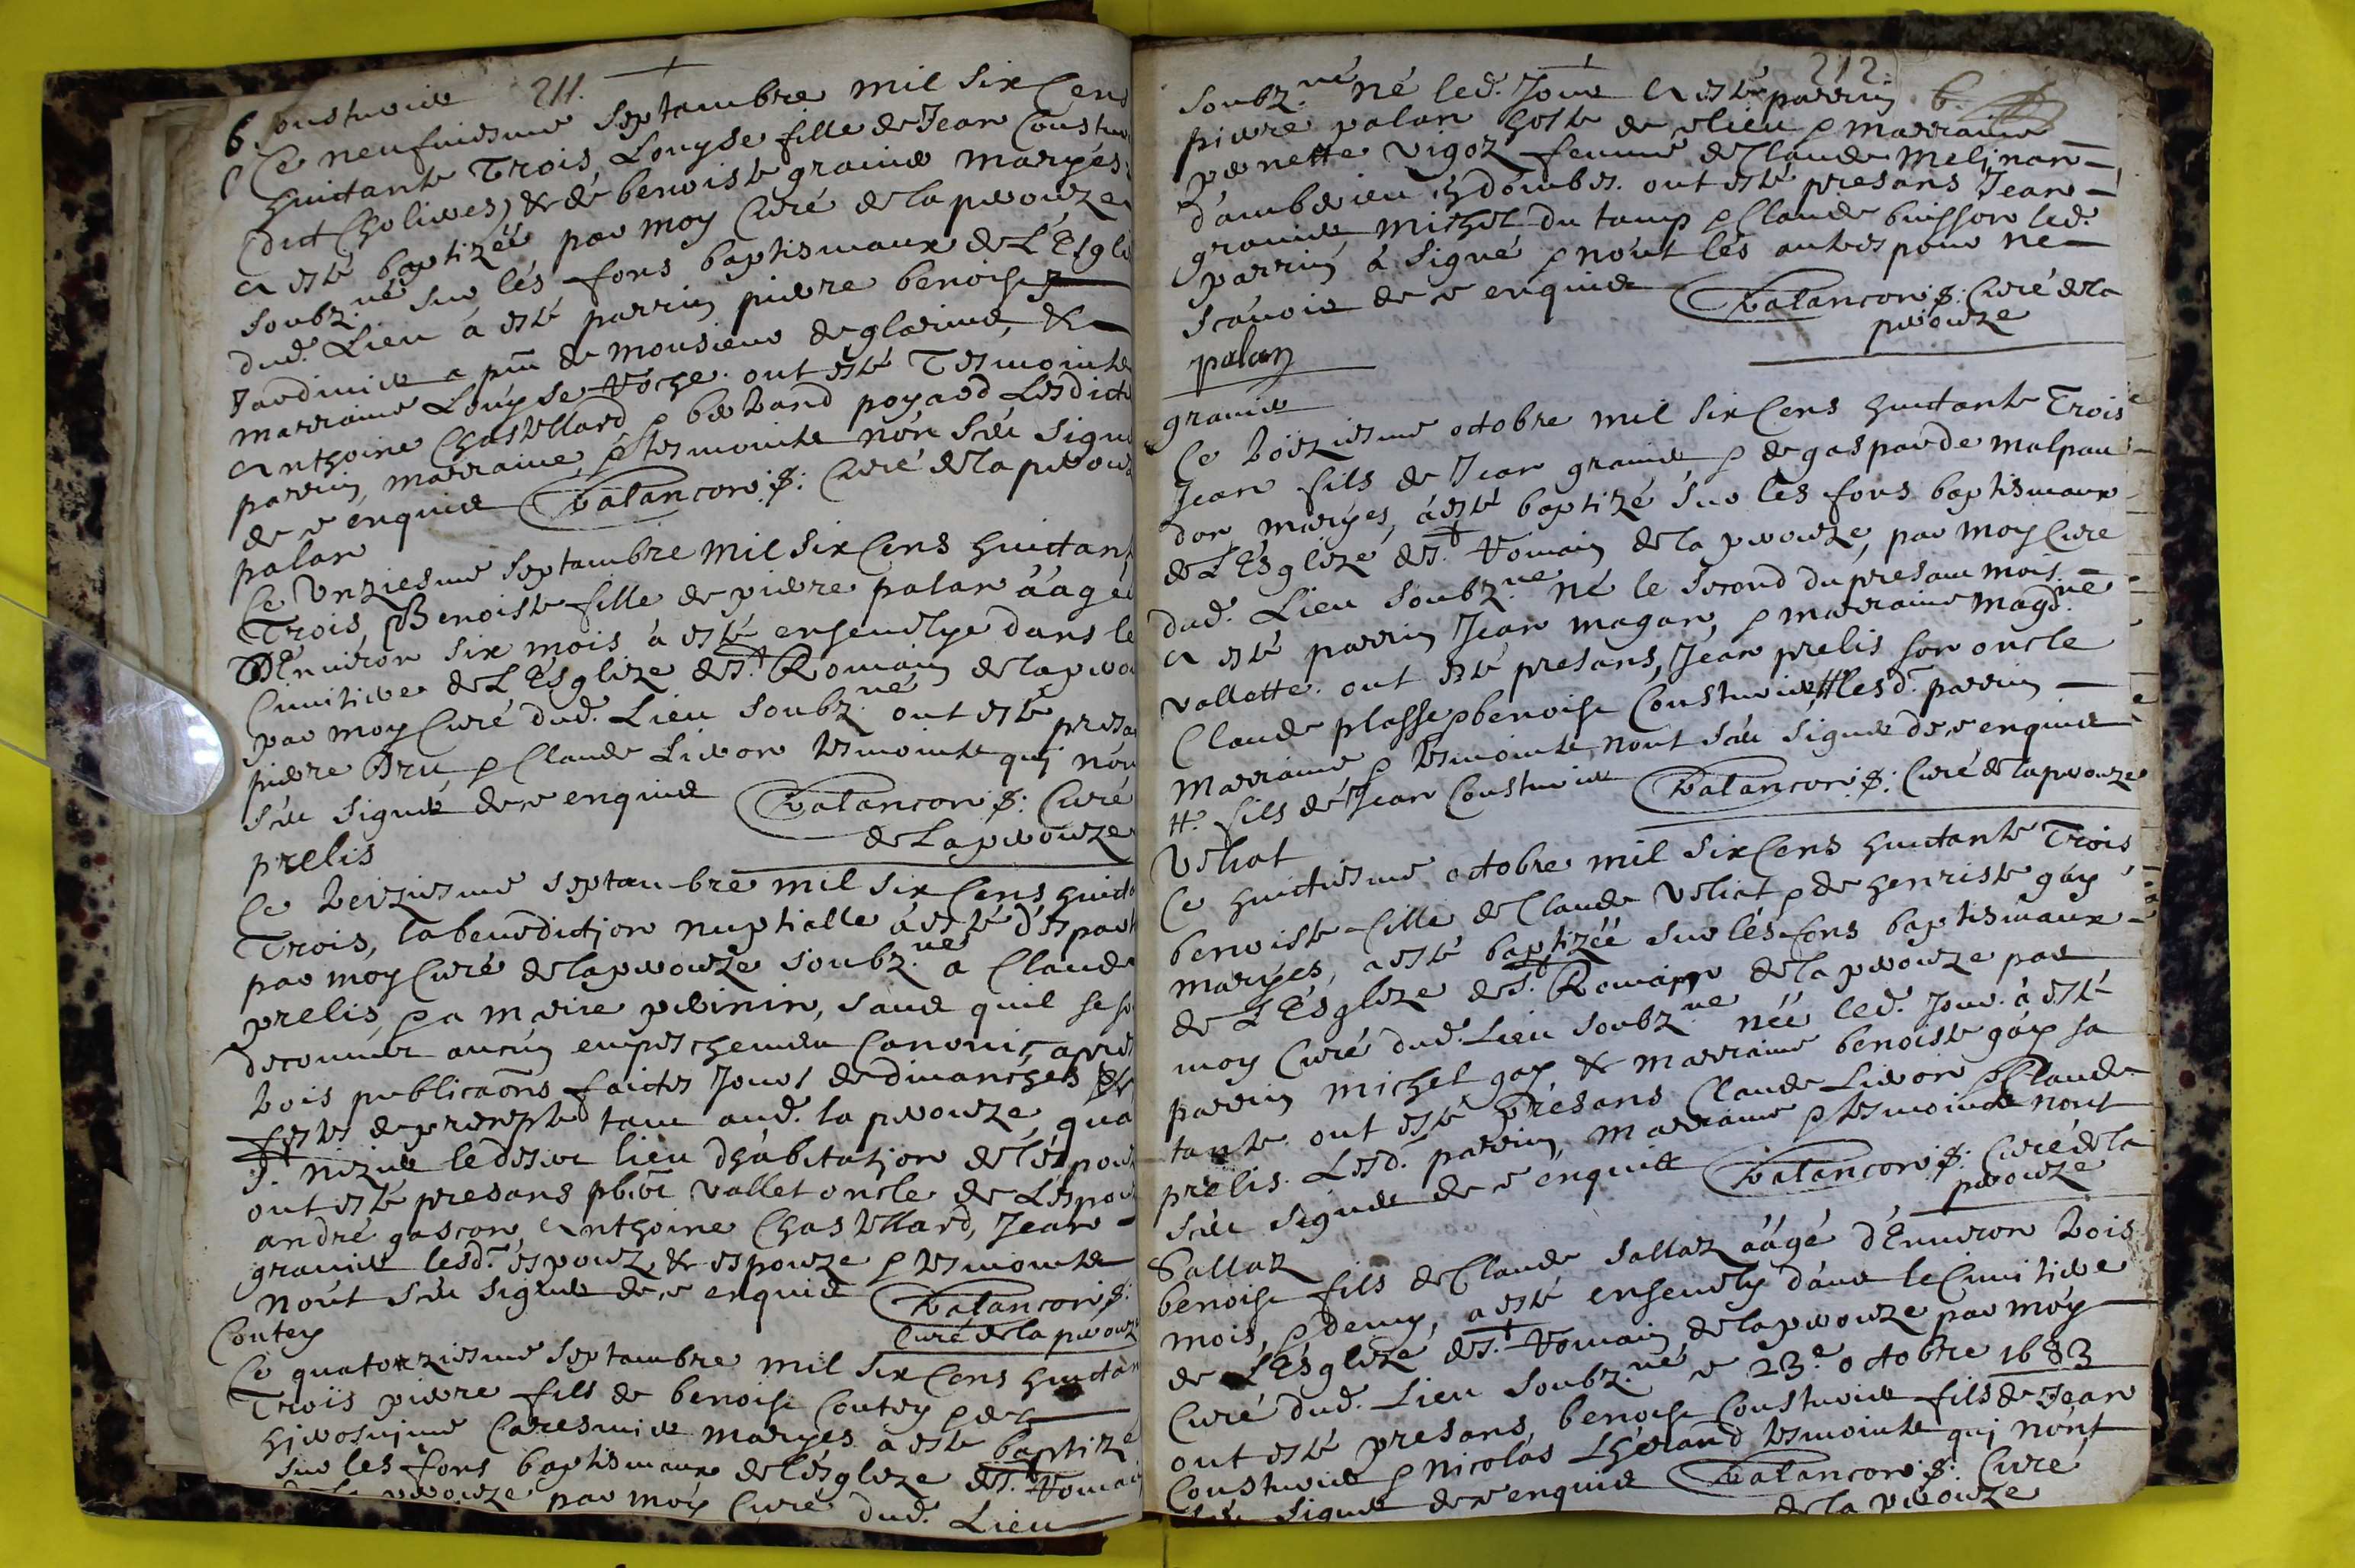 211.
b. Cousturier
Ce neufuiesme Septambre mil Six Cens
huictante Trois, Louyse fille de Jean Coustur
(dict Cholires) & de benoiste granier maryés
a esté baptizée par moy Curé de la peyrouze
soubz.né sur lés fons baptismaux de L'Esgli
dud. Lieu a esté parrin pierre benoist
Jardinier a pnt de monsieur de glarins, &
marraine Louyse Roche. ont esté Tesmoints
Anthoine Chastellard & bertrand poyard Lesdicts
parrin, marraine, & tesmoints nón sceu signe
de ce enquis Balancon p: Curé de la peyrouz
palan
Ce Unziesme Septambre mil Six Cens huictant
Trois, Benoiste fille de pierre palan áágée
D'Enuiron six mois à esté enseuelye dans le
Cimitiere de L'Esglize de St. Romain de la peyro
par moy Curé dud. Lieu Soubz.né ont esté presa
pierre Bru & Claude Liuron tesmoints quj nón
sceu signer de ce enquis Balancon p: Curé
de La peyrouze
prelis
Ce treiziesme Septambre mil Six Cens huicta
Trois, la benediction nuptialle á esté dèspart
par moy Curé de la peyrouze soubz.né a Claude
prelis, & a marie perinin, sans quil se so
decouuert aucun empeschemen Canonic, apres
trois publicaôns faictes Jours de dimanches &
festes de precepte tant aud. la peyrouze, qua
St. nizier le desert lieu d'hábitation de lèspouz
ont esté presans pbert vallet oncle de Lèspouz
andré gascon, Anthoine Chastellard, Jean
granier lesd. espouz, & espouze & tesmoints
nónt sceu signer de ce enquis Balancon p:
Curé de la peyrouz
Coutey
Ce quatorziesme Septambre mil Six Cens huictan
Trois pierre fils de benoist Coutey & de
hierosnime Caresmier maryés a esté baptizé
sur les fons baptismaux de lesglize de St. Romai
de la peyrouze par moy Curé dud. Lieu
212.
soubz.né né led. Jour a esté parrin b.
pierre palan hoste de ce lieu & marraine
pernette vigoz femme de Claude melinan
d'amberieu en dombes. ont esté presans Jean
granier, michel du tamp & Claude buisson led.
parrin á signé & nónt lés autres pour ne
scauoir de ce enquis Balancon p: Curé de la
peyrouze
palan
granier
Ce troiziesme octobre mil Six Cens huictante Trois
Jean fils de Jean granier & de gasparde malpau
don maryes, á esté baptizé sur lés fons baptismaux
de L'Esglize de St. Romain de la peyrouze, par moy Cure
dud. Lieu Soubz.né né le Second du presant mois
a esté parrin Jean magan, & marraine magd.ne
vallette. ont esté presans, Jean prelis son oncle
Claude plasse & benoist Cousturier # lesd. parrin
marraine & tesmoints nont sceu signer de ce enquis
#. fils de Jean Cousturier Balancon p: Curé de la peyrouze
Veliat
Ce huictiesme octobre mil Six Cens huictante Trois
benoiste fille de Claude Veliat & de henriste gay
maryes, a esté baptizée sur lés fons baptismaux
de L'Esglize de St. Romain de la peyrouze par
moy Curé dud. Lieu Soubz.né née led. Jour. á esté
parrin michel gay & marraine benoiste gáy sa
tante. ont esté présans Claude Liuron & Claude
prelis. Lesd. parrin, marraine & tesmoints nont
sceu signer de ce enquis Balancon p: Curé de la
peyrouze
Sallaz
benoist fils de Claude Sallaz áágé d'Enuiron trois
mois, & demy, a esté enseuely dans le Cimitiere
de L'Esglize de St. Romain de la peyrouze par moy
Curé dud. Lieu Soubz.né ce 23.e octobre 1683
ont esté presans, benoist Cousturier fils de Jean
Cousturier & nicolas Lherand tesmoints quj nónt
sceu signer de ce enquis Balancon p: Curé
de la peyrouze